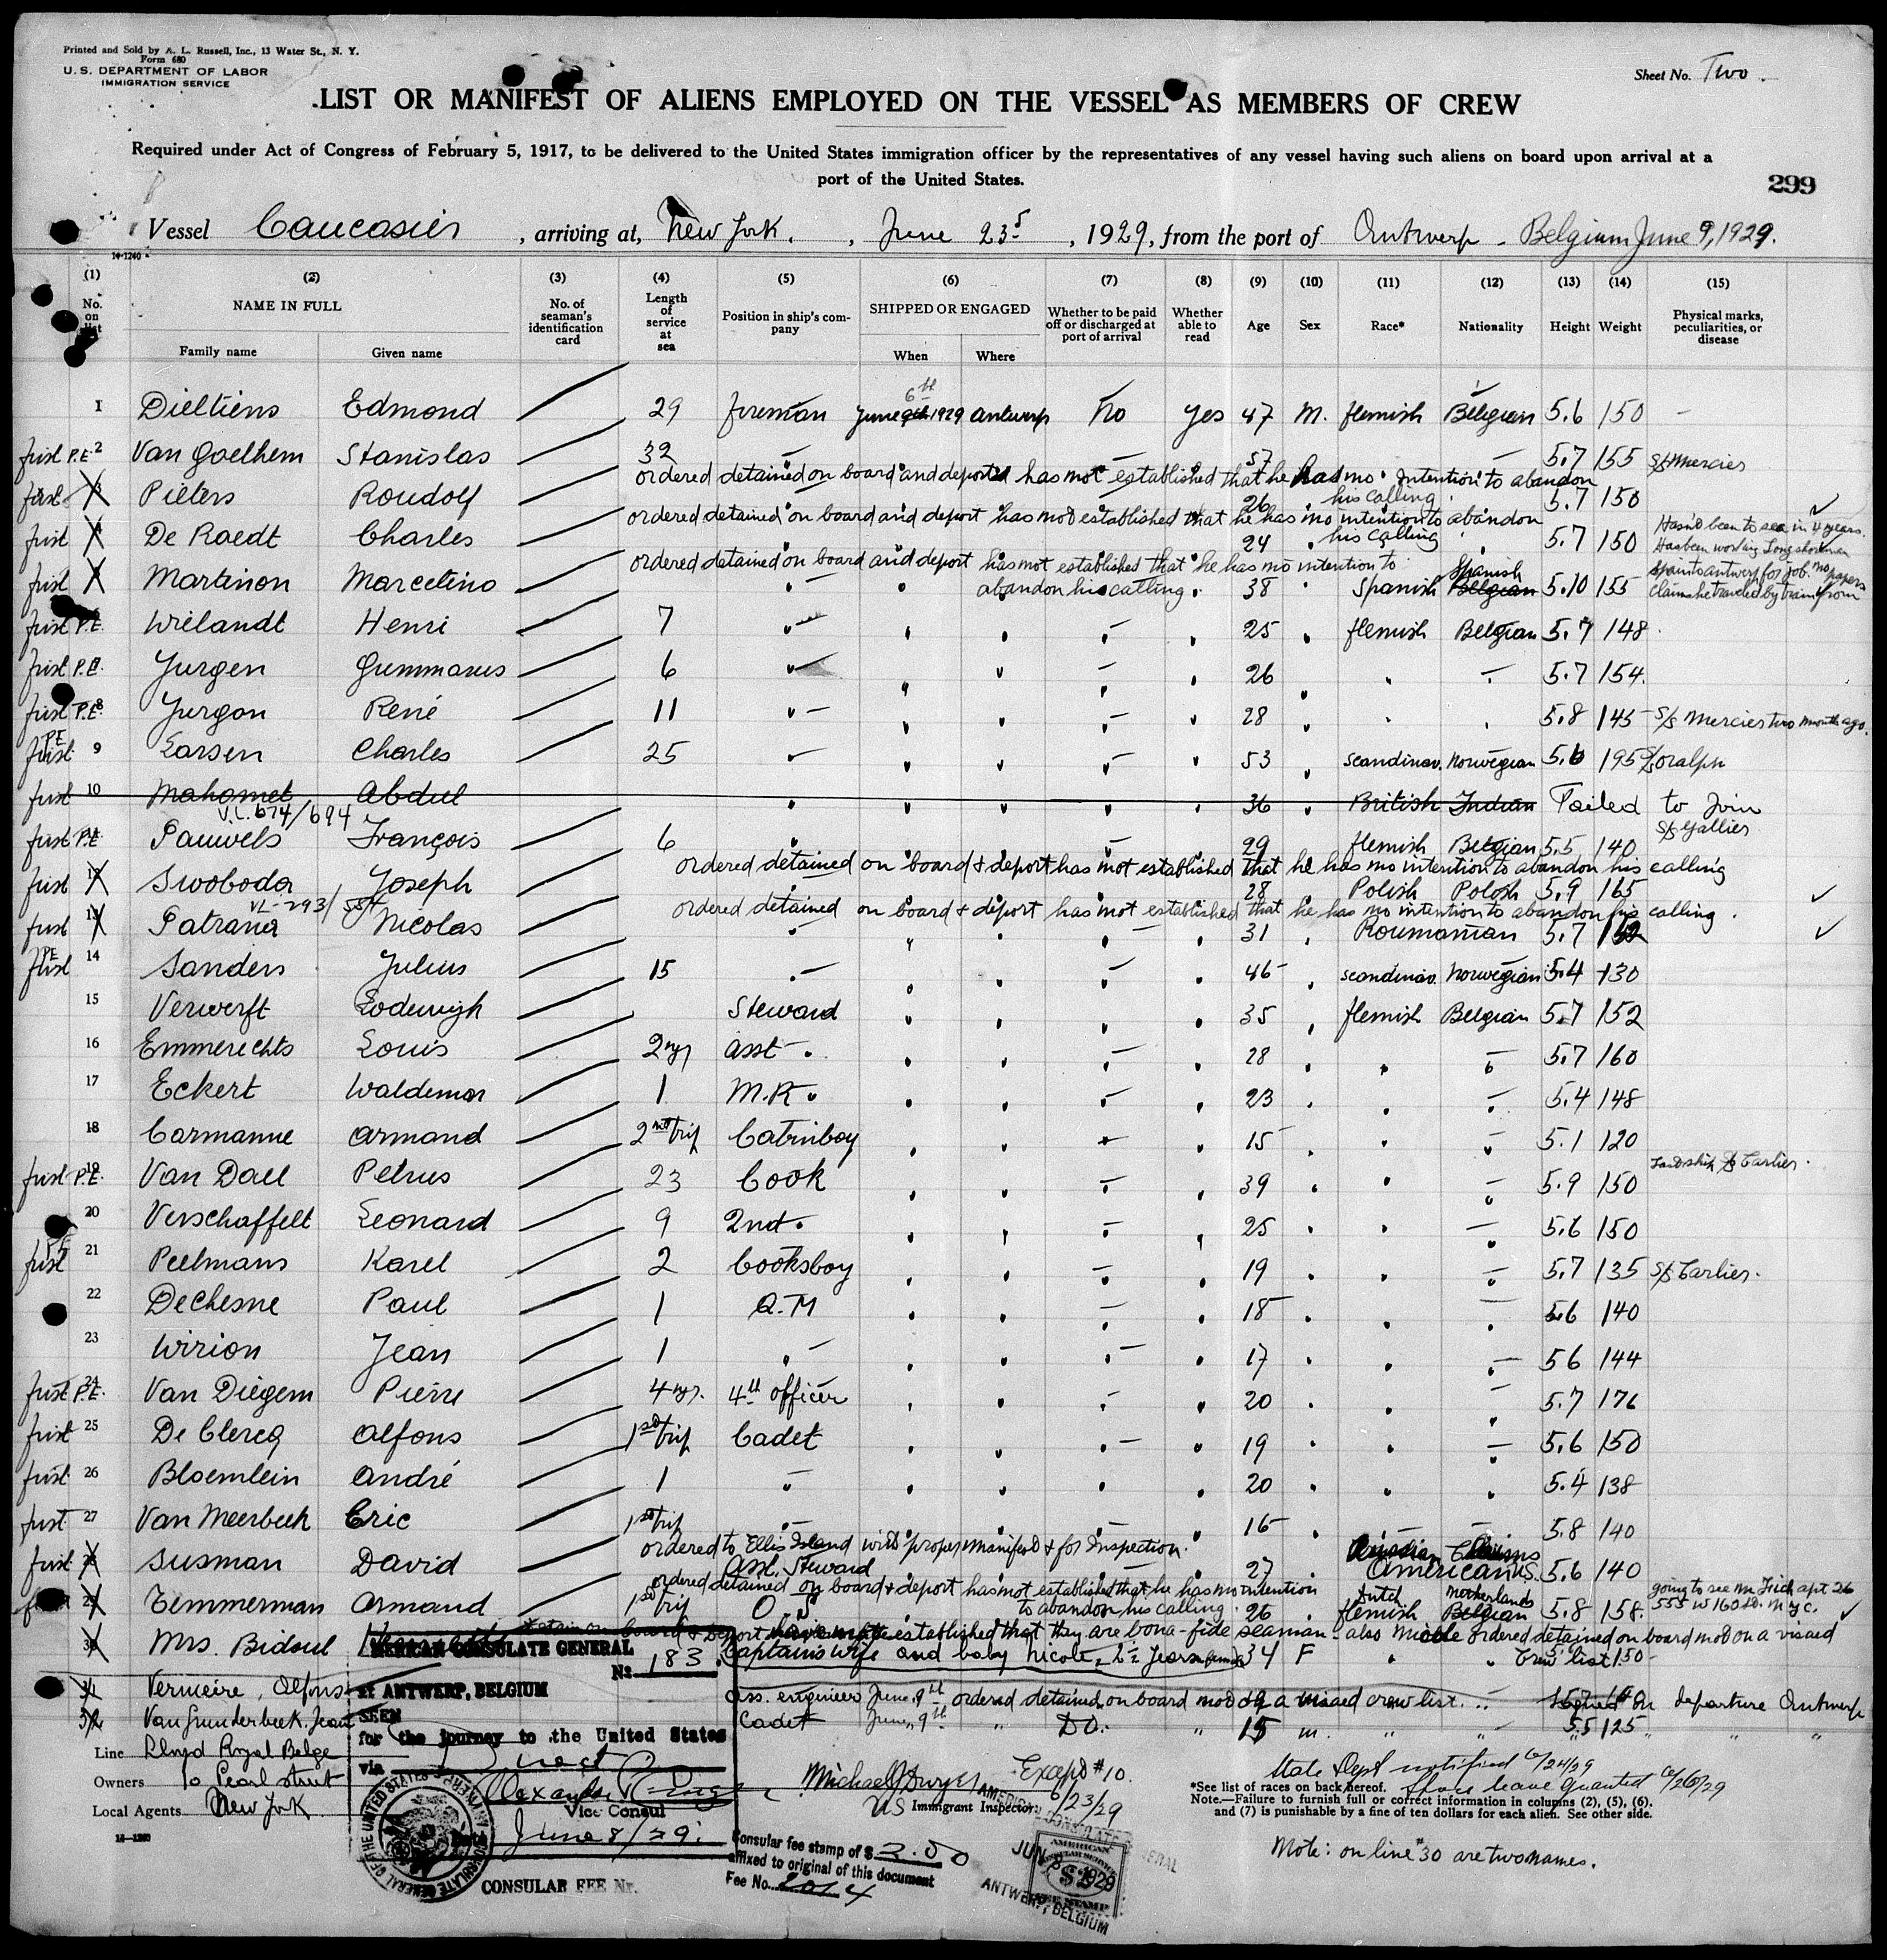 Printed and Sold by A. L. Russell, Inc., 13 Water St., N. Y.
Form 680
U. S. DEPARTMENT OF LABOR
IMMIGRATION SERVICE
Sheet No. Two.
LIST OR MANIFEST OF ALIENS EMPLOYED ON THE VESSEL AS MEMBERS OF CREW
Required under Act of Congress of February 5, 1917, to be delivered to the United States immigration officer by the representatives of any vessel having such aliens on board upon arrival at a
port of the United States.
299
Vessel Caucasier, arriving at, New York., June 23, 1929, from the port of Antwerp - Belgium June 9, 1929.
14-1240
(1) (2) (3) (4) (5) (6) (7) (8) (9) (10) (11) (12) (13) (14) (15)
No. on list
NAME IN FULL
Family name Given name
No. of seaman's identification card
Length of service at sea
Position in ship's company
SHIPPED OR ENGAGED
When Where
Whether to be paid off or discharged at port of arrival
Whether able to read
Age Sex Race* Nationality Height Weight
Physical marks, peculiarities, or disease
6th
1 Dieltiens Edmond 29 fireman June 1929 Antwerp No Yes 47 M. flemish Belgian 5.6 150 -
first P.E. 2 Van Goethem Stanislas 32 57 5.7 155 S/S Mercier
ordered detained on board and deported has not established that he has no intention to abandon
his calling
first 3 Pieters Roudolf 26 5.7 150
ordered detained on board and deport has not established that he has no intention to abandon
his calling
first 4 De Raedt Charles 24 5.7 150 Hasn't been to sea in 4 years. Has been working Longshoreman
ordered detained on board and deport has not established that he has no intention to
abandon his calling.
first Martinon Marcelino 38 Spanish Spanish Belgian 5.10 155 Spain to antwerp for job. no papers claims he traveled by train from
first P.E. Wielandt Henri 7 25 flemish Belgian 5.7 148
first P.E. 7 Jurgen Gummarus 6 26 5.7 154
first P.E. 8 Jurgon René 11 28 5.8 145 S/S Mercier two months ago.
first P.E. 9 Larsen Charles 25 53 scandinav. Norwegian 5.6 195
first 10 Mahomet Abdul 36 British Indian Failed to Join
V.L. 674/694
first P.E. Pauwels François 6 29 flemish Belgian 5.5 140 S/S Gallier
ordered detained on board & deport has not established that he has no intention to abandon his calling
first 12 Swoboda Joseph 28 Polish Polish 5.9 165
ordered detained on board & deport has not established that he has no intention to abandon his calling.
first 13 Patrana Nicolas 31 Roumanian 5.7
first P.E. 14 Sanders Julius 15 46 scandinav. Norwegian 5.4 130
15 Verwerft Lodewigh Steward 35 flemish Belgian 5.7 152
16 Emmerechts Louis 2 Asst 28 5.7 160
17 Eckert Waldemar 1 M.R. 23 5.4 148
18 Carmanne Armand 2nd trip Cabinboy 15 5.1 120
first P.E. 19 Van Dall Petrus 23 Cook 39 5.9 150 S/S Carlier.
20 Verschaffelt Leonard 9 2nd 25 5.6 150
first 21 Peelmans Karel 2 Cooksboy 19 5.7 135 S/S Carlier.
22 Dechesne Paul 1 Q.M 18 5.6 140
23 Wirion Jean 1 17 5 6 144
first P.E. 24 Van Diegem Pierre 4 4th officer 20 5.7 176
first 25 De Clercq Alfons 1st trip Cadet 19 5.6 150
first 26 Bloemlein André 1 20 5.4 138
first 27 Van Meerbeek Eric 1st trip 16 5.8 140
ordered to Ellis Island with proper manifest & for Inspection.
first 28 Susman David Asst. Steward 27 Russian Claims American U.S. 5.6 140
ordered detained on board & deport has not established that he has no intention
to abandon his calling
29 Temmerman Armand 1st trip 26 Dutch flemish Netherlands Belgian 5.8 158. going to see apt 26 555 W 160 St. N.Y.C.
detain on board & deport have not established that they are bona-fide seaman - also ordered detained on board not on a visaed
30 Mrs. Bidoul Captains wife and baby Nicole 2½ years 34 F crew list 150
31 Vermeire, Alfons Ass. engineer June 9th ordered detained on board not on a visaed crew list. signed on departure Antwerp
32 Van Gunderbeek. Jean Cadet June 9th " Do. " 15 m. 5.5 125 " " "
Line Lloyd Royal Belge
Owners 10 Pearl Street
Local Agents New York
14-1240
AMERICAN CONSULATE GENERAL
No 183.
at ANTWERP, BELGIUM
SEEN
for the journey to the United States
via Direct
Vice Consul
Date June 8/29.
CONSULAR FEE Nr.
Consular fee stamp of $ 2.00
affixed to original of this document
Fee No. 2014
Michael J Dwyer
US Immigrant Inspector
Except #10.
6/23/29
AMERICAN CONSULATE GENERAL
JUN 8 1929
ANTWERP, BELGIUM
AMERICAN CONSULAR SERVICE
$2
FEE STAMP
State Dept notified 6/24/29
Shore leave granted 6/26/29
*See list of races on back hereof.
Note.—Failure to furnish full or correct information in columns (2), (5), (6),
and (7) is punishable by a fine of ten dollars for each alien. See other side.
Note: on line #30 are two names.